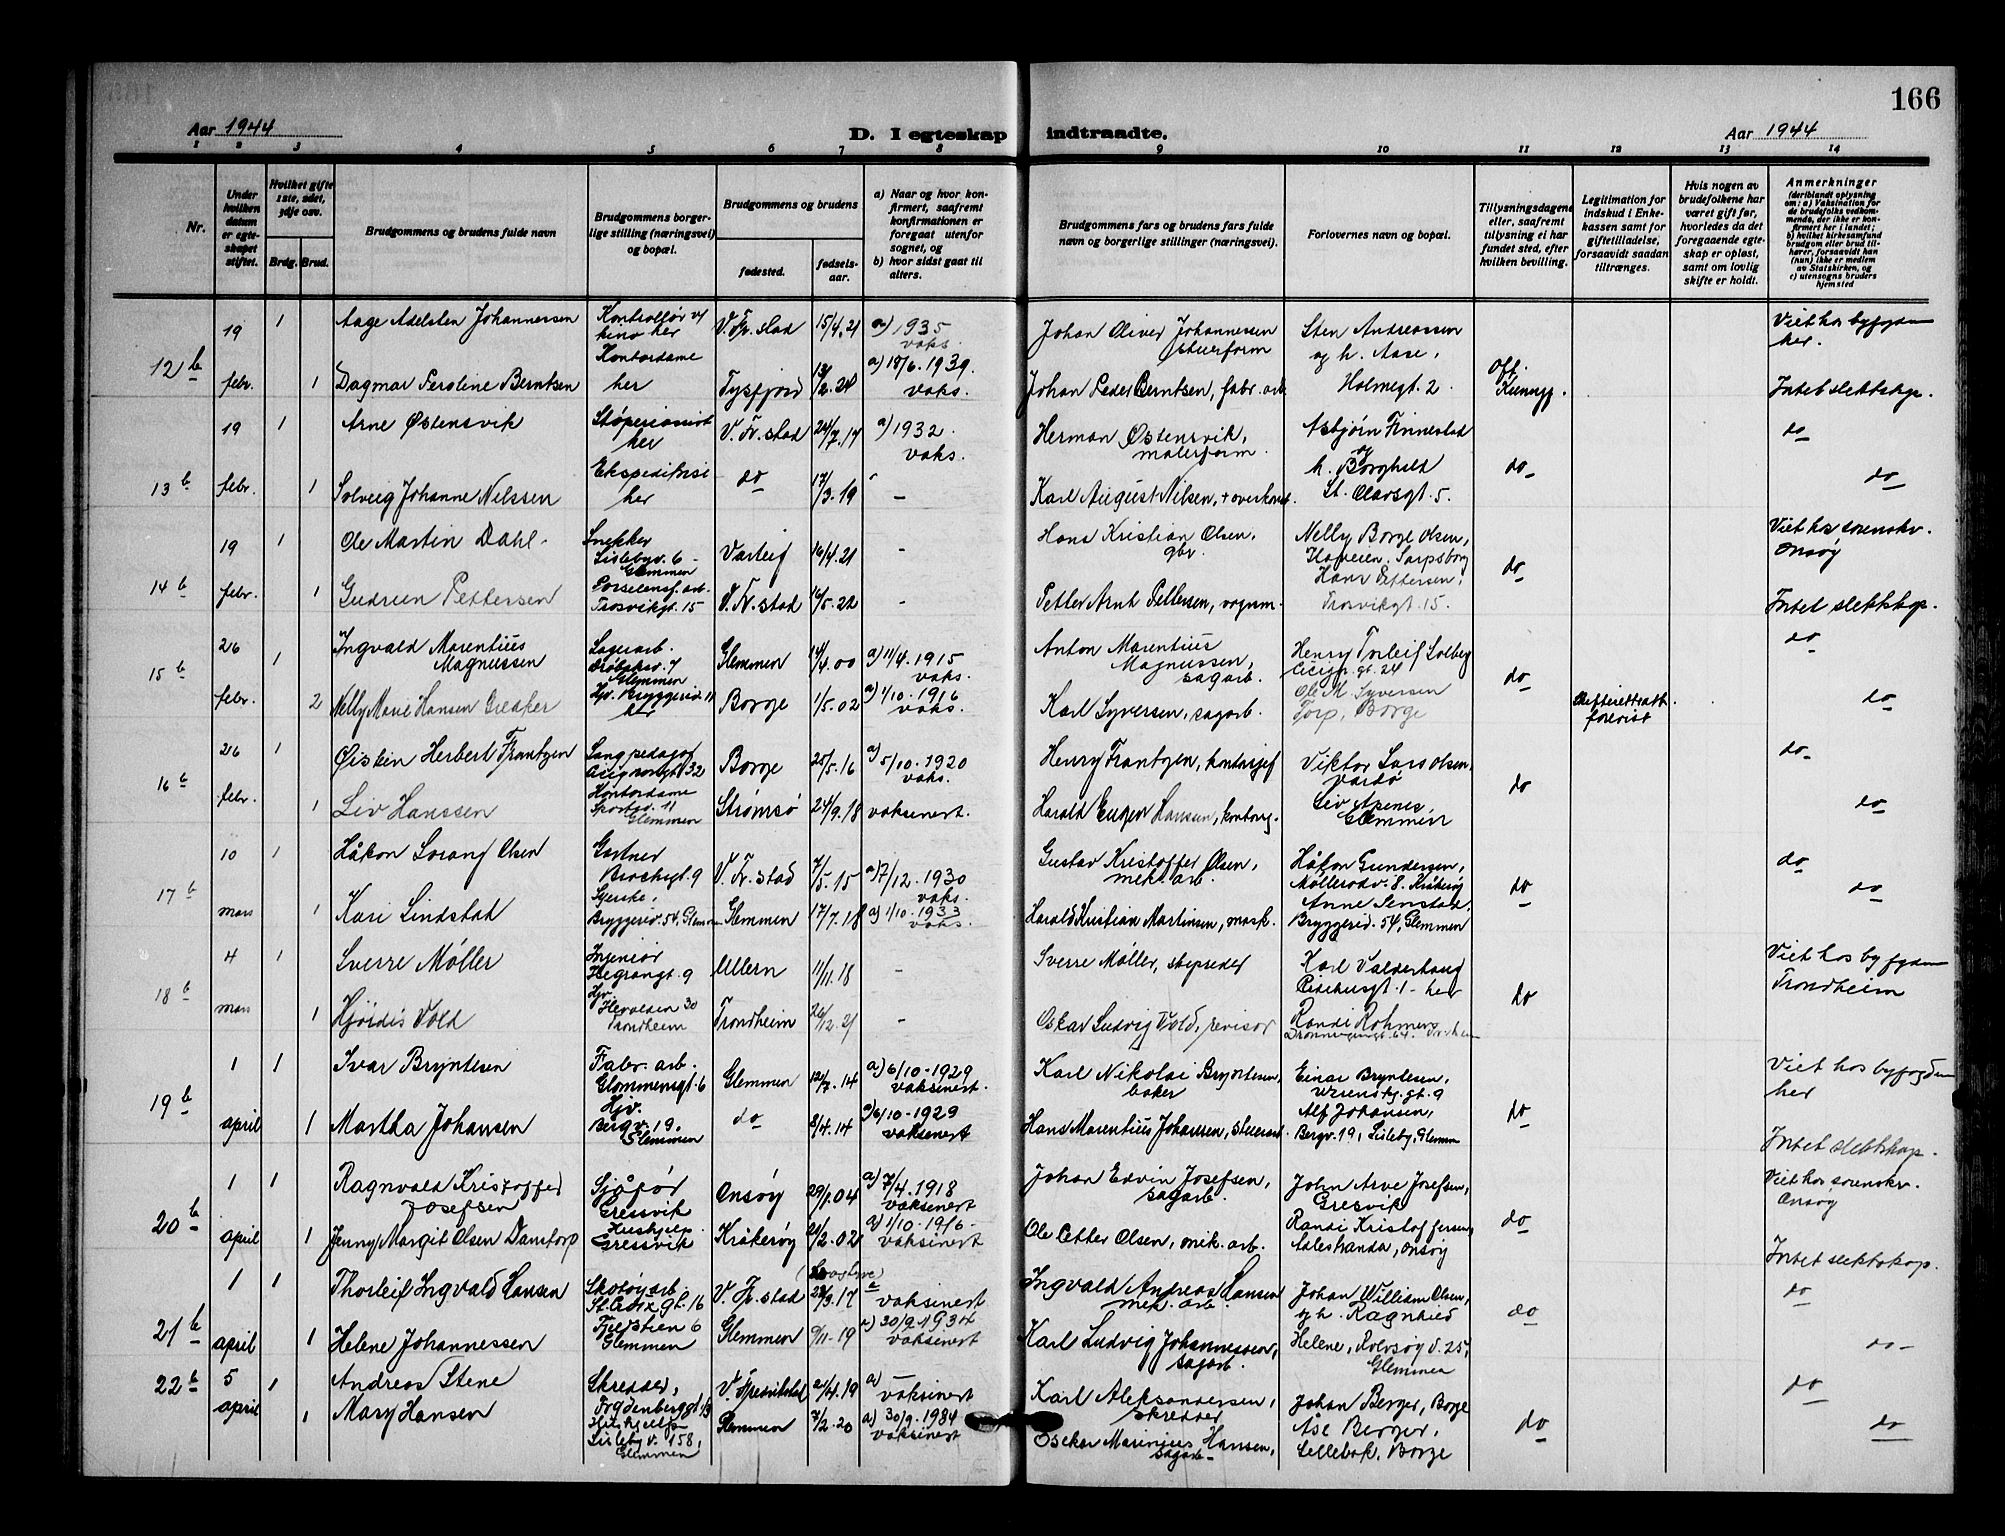 166
Aar 1944
D. I egteskap indtraadte.
Aar 1944
1 2 3 4 5 6 7 8 9 10 11 12 13 14
Nr.
Under hvilken datum er egteskapet stiftet.
Hvilket gifte 1ste, 2det, 3dje osv.
Brdg. Brud.
Brudgommens og brudens fulde navn
Brudgommens borgerlige stilling (næringsvei) og bopæl.
Brudgommens og brudens
fødested.
fødselsaar.
a) Naar og hvor konfirmert, saafremt konfirmationen er foregaat utenfor sognet, og
b) hvor sidst gaat til alters.
Brudgommens fars og brudens fars fulde navn og borgerlige stillinger (næringsvei).
Forlovernes navn og bopæl.
Tillysningsdagene eller, saafremt tillysning ei har fundet sted, efter hvilken bevilling.
Legitimation for indskud i Enkekassen samt for giftetilladelse, forsaavidt saadan tiltrænges.
Hvis nogen av brudefolkene har været gift før, hvorledes da det foregaaende egteskap er opløst, samt om lovlig skifte er holdt.
Anmerkninger
(deriblandt oplysning om: a) Vaksination for de brudefolks vedkommende, der ikke er konfirmert her i landet; b) hvilket kirkesamfund brudgom eller brud tilhører, forsaavidt han (hun) ikke er medlem av Statskirken, og c) utensogns bruders hjemsted
12 b 19 febr.
1 Aage Adelsten Johannessen Kontrollør v/ kino her V. Fr. stad 15/4.21 a) 1935 vaks. Johan Oliver Johannessen Sten Andreassen og h. Aase, Viet hos byfogden her.
1 Dagmar Feroline Berntsen Kontordame her Tysfjord a) 18/6.1939. vaks. Johan Peder Berntsen, fabr. arb. Holmegt. 2 Off. Intet slektskap.
13 b 19 febr.
1 Arne Østensvik her V. Fr. stad 24/7.17 a) 1932. vaks. Herman Østensvik, malerform. Asbjørn Finnestad og do
1 Solveig Johanne Nilssen her do 17/3.19 - Karl August Nilsen, h. Borghild St. Olavsgt. 5. do do
14 b 19 febr.
1 Ole Martin Dahl Snekker Lislebyv. 6 Glemmen Varteig 16/4.21 - Hans Kristian Olsen, gbr. Nelly Borge Olsen, Sarpsborg Viet hos sorenskr. Onsøy
1 Gudrun Pettersen Porselensf. arb. Trosvikgt. 15 V. Fr. stad 16/5.22 - Petter Arnt Pettersen, Hans Pettersen, Trosvikgt. 15. do Intet slektskap.
15 b 26 febr.
1 Ingvald Marentius Magnussen Lagerarb. Glemmen Glemmen 14/4.00 a) 11/4.1915 vaks. Anton Marentius Magnussen, sagarb. Henry Torleif Solberg do
2 Nelly Marie Hansen Greaker her Borge 1/5.02 a) 1/10.1916 vaks. Karl Syversen, sagarb. Ole M. Syversen Torp, Borge do Skifteretsatt. forevist do
16 b 26 febr.
1 Øistein Herbert Frantzen Sangpedagog Borge 25/5.16 a) 5/10.1920 vaks. Henry Frantzen, kontorsjef Viktor Lars Olsen, Vardø do
1 Liv Hanssen Kontordame Glemmen Strømsø 24/9.18 vaksinert. Harald Eugen Hanssen, Liv Apenes, Glemmen do do
17 b 10 mars
1 Håkon Sorang Olsen Gartner Brochsgt. 9 V. Fr. stad 7/5.15 a) 7/12.1930 vaks. Gustav Kristoffer Olsen, mek. arb. Håkon Gundersen, Møllerodv. 8. Kråkerøy do
1 Kari Lindstad Syerske, Bryggeriv. 54, Glemmen Glemmen 17/7.18 a) 1/10.1933 vaks. Harald Kristian Martinsen, mask. Bryggeriv. 54, Glemmen do do
18 b 4 mars
1 Sverre Møller Injeniør Ullern 11/11.18 - Sverre Møller, skipsreder Karl Valderhaug her Viet hos byfogden Trondheim
1 Hjørdis Vold Hjv. Trondheim Trondheim 26/12.21 - Oskar Ludvig Vold, revisor do
19 b 1 april
1 Ivar Bryntesen Fabr. arb. Glommensgt. 6 Glemmen a) 6/10-1929 vaksinert. Karl Nikolai Bryntesen, baker Einar Bryntesen, Viet hos byfogden her
1 Martha Johansen Hjv. Bergv. 19. Glemmen do 8/4.14 a) 6/10-1929 vaksinert Hans Marentius Johansen, Alf Johansen, Bergv. 19, Lisleby, Glemmen do Intet slektskap.
20 b 1 april
1 Ragnvald Kristoffer Josefsen Sjåfør Gressvik Onsøy 29/1.04 a) 7/4.1918 vaksinert Johan Edvin Josefsen, sagarb. John Arve Josefsen, Gresvik Viet hos sorenskr. Onsøy
1 Jenny Margit Olsen Damtorp Hushjelp. Gressvik Kråkerøy 21/2.02 a) 1/10-1916- vaksinert Ole Petter Olsen, mek. arb. Randi Kristoffersen, Onsøy do Intet slektskap.
21 b 1 april
1 Thorleif Ingvald Hansen Skotøyarb. St. Croix gt. 16 V. Fr. stad vaksinert Ingvald Andreas Hansen mek. arb. Johan William Olsen, og h. Ragnhild do
1 Helene Johannessen Fjelstien 6 Glemmen Glemmen 9/11-19 a) 30/9.1934 vaksinert Karl Ludvig Johannessen, sagarb. Helene, Rolvsøy v. 25, Glemmen do do
22 b 5 april
1 Andreas Stene Skredder, V. Fredrikstad 21/4.19 a) - vaksinert Karl Aleksandersen, skredder Johan Berger, Borge do
1 Mary Hansen Hushjelp Lisleby v. 158, Glemmen Glemmen 7/2.20 a) 30/9.1984 vaksinert Osckar Marinius Hansen, sagarb. Åse Berger, Sellebak, Borge do do